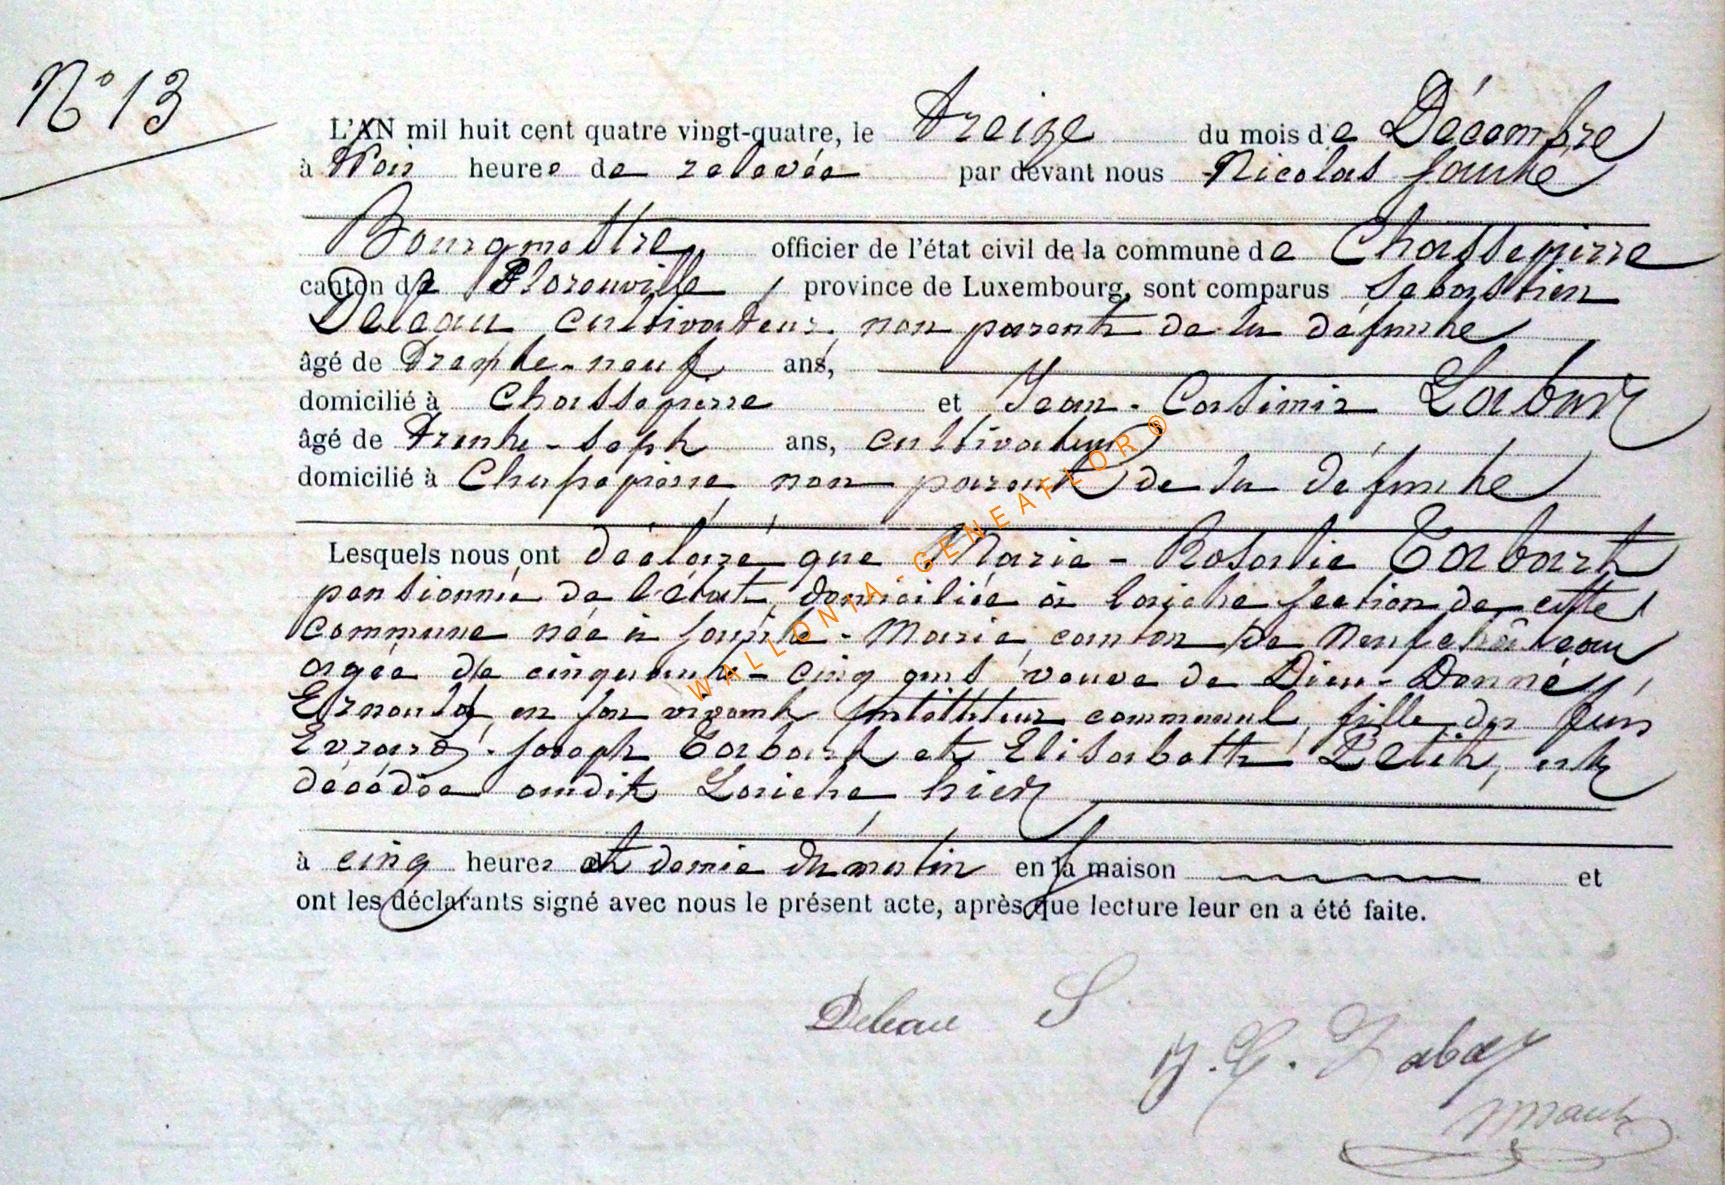 N° 13
L'AN mil huit cent quatre vingt-quatre, le treize du mois de Décembre
à trois heures de relevée par devant nous Nicolas
Bourgmestre officier de l'état civil de la commune de Chassepierre
canton de Florenville, province de Luxembourg, sont comparus Sébastien
Deleau cultivateur, non parent de la défunte
âgé de Trente-neuf ans,
domicilié à Chassepierre et Jean-Casimir Labay
âgé de Trente-sept ans, cultivateur
domicilié à Chassepierre, non parent de la défunte
Lesquels nous ont déclaré que Marie-Rosalie Tabart
pensionnée de l'état, domiciliée à Laiche section de cette
commune née à -Marie, canton de Neufchâteau
agée de cinquante-cinq ans veuve de Dieu-Donné
Ernould, en son vivant Instituteur communal, fille des feus
Evrard-Joseph Tabart et Elisabeth Petit, est
décédée audit Laiche hier
à cinq heures et demie du matin en sa maison et
ont les déclarants signé avec nous le présent acte, après que lecture leur en a été faite.
WALLONIA-GENEAFLOR©
Deleau S
J. C. Labay